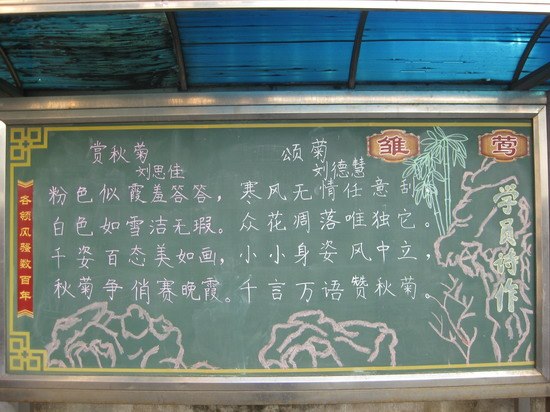 雏莺
学员诗作
各领风骚数百年
赏秋菊
刘思佳
粉色似霞羞答答，
白色如雪洁无瑕。
千姿百态美如画，
秋菊争俏赛晚霞。
颂菊
刘德慧
寒风无情任意刮，
众花凋落唯独它。
小小身姿风中立，
千言万语赞秋菊。